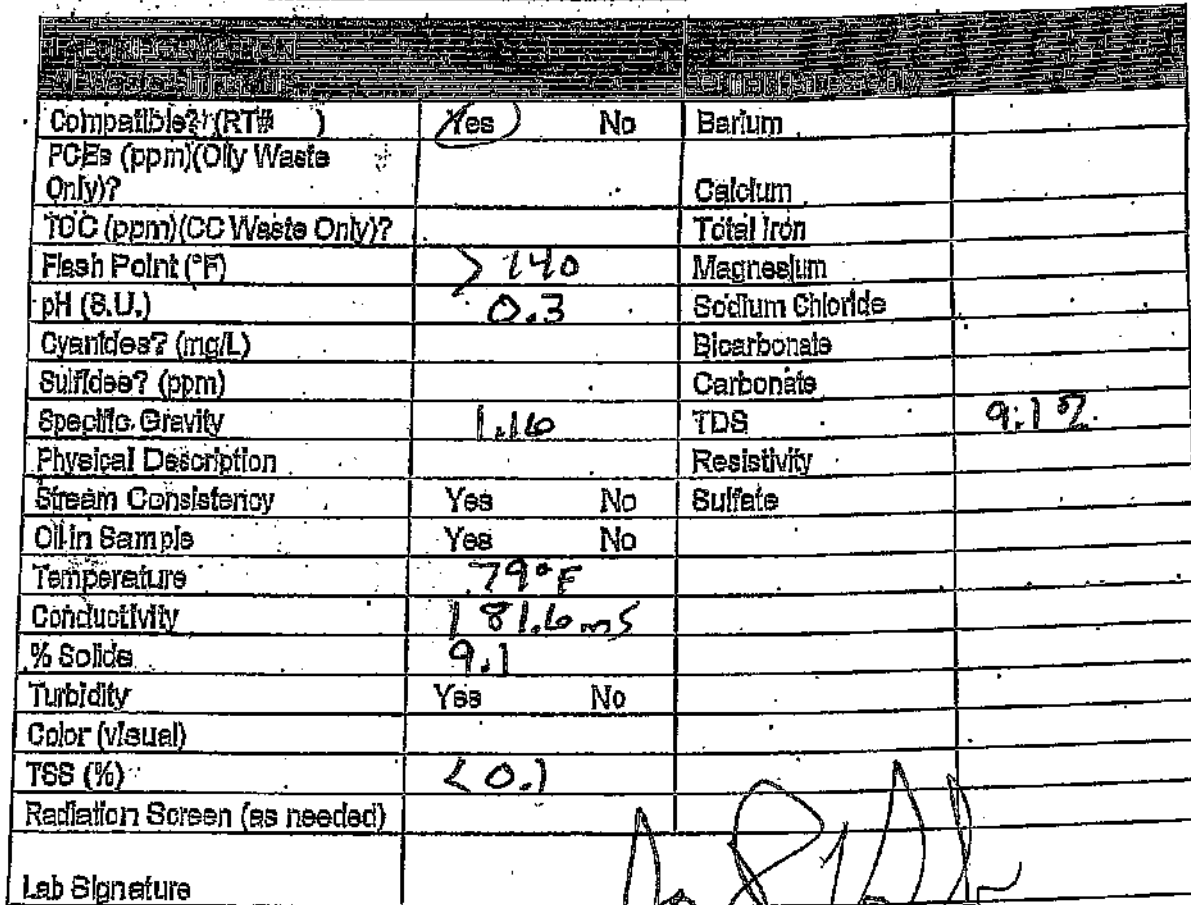 Compatible? (RT# ) Yes No Barium
PCBs (ppm)(Oily Waste
Only)? Calcium
TOC (ppm)(CC Waste Only)? Total Iron
Flash Point (°F) > 140 Magnesium
pH (S.U.) 0.3 Sodium Chloride
Cyanides? (mg/L) Bicarbonate
Sulfides? (ppm) Carbonate
Specific Gravity 1.16 TDS 9.1%
Physical Description Resistivity
Stream Consistency Yes No Sulfate
Oil in Sample Yes No
Temperature 79°F
Conductivity 181.6 mS
% Solids 9.1
Turbidity Yes No
Color (visual)
TSS (%) < 0.1
Radiation Screen (as needed)
Lab Signature